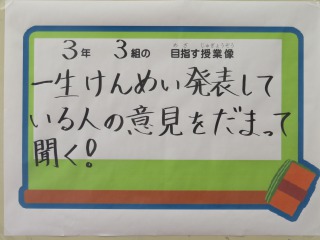 3年 3組の 目指す授業像
一生けんめい発表して
いる人の意見をだまって
聞く!